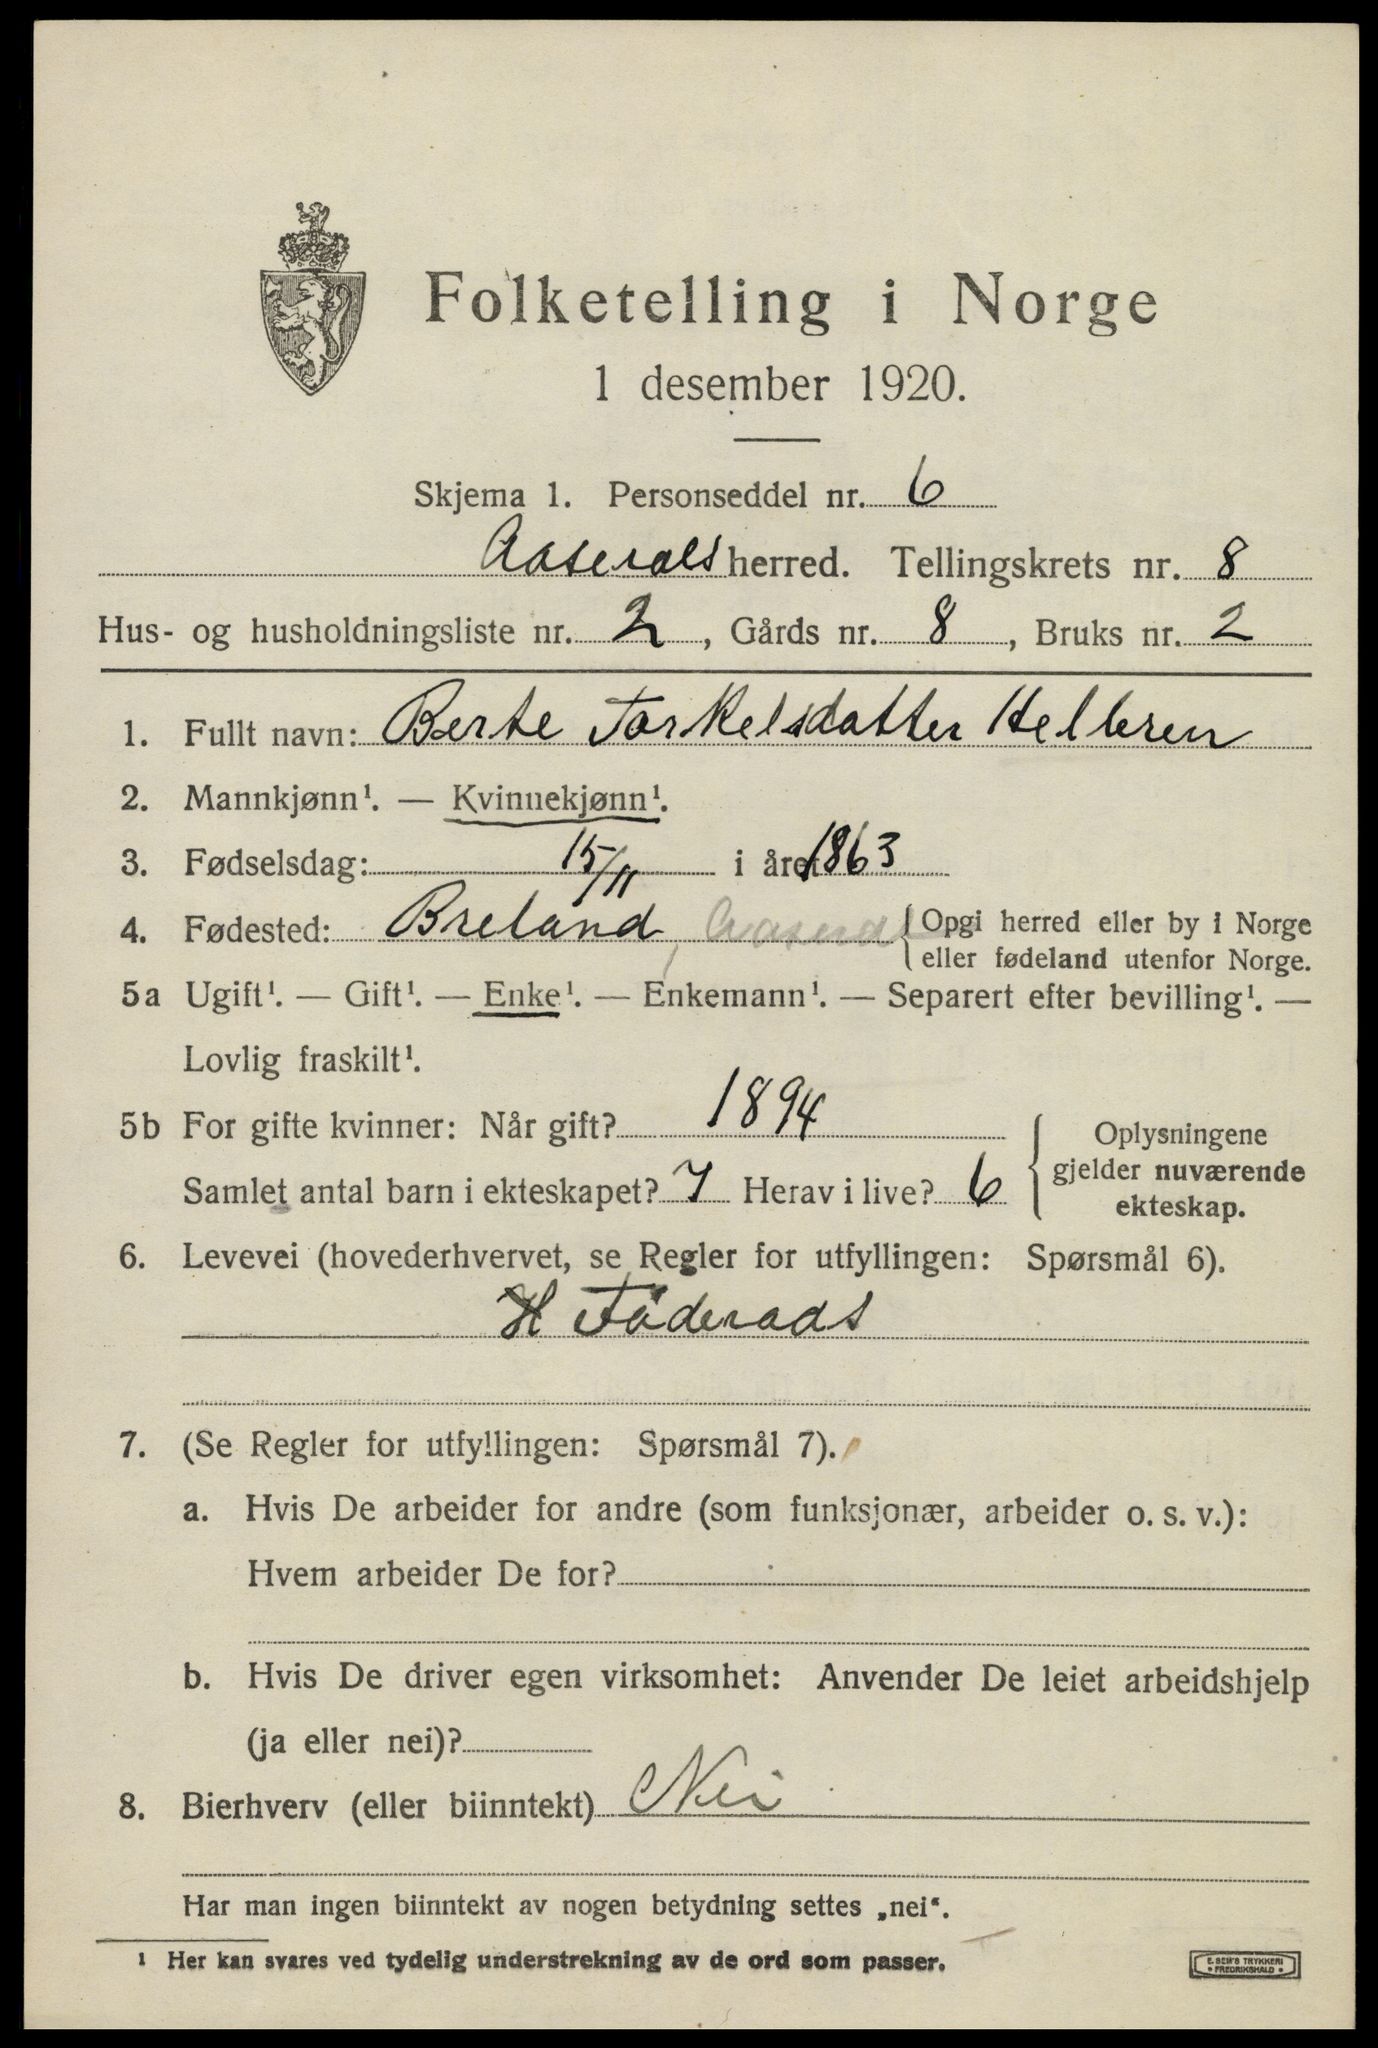 Folketelling i Norge
1 desember 1920.
Skjema 1. Personseddel nr. 6
Aaseralsherred. Tellingskrets nr. 8
Hus- og husholdningsliste nr. 2, Gårds nr. 8, Bruks nr. 2
1. Fullt navn: Berte Torkelsdatter Helleren
2. Mannkjønn¹. — Kvinnekjønn¹.
3. Fødselsdag: 15/11 i året 1863
4. Fødested: Breland, Aaseral { Opgi herred eller by i Norge
eller fødeland utenfor Norge.
5a Ugift¹. — Gift¹. — Enke¹. — Enkemann¹. — Separert efter bevilling¹. —
Lovlig fraskilt¹.
5b For gifte kvinner: Når gift? 1894
Samlet antal barn i ekteskapet? 7 Herav i live? 6
{ Oplysningene
gjelder nuværende
ekteskap.
6. Levevei (hovederhvervet, se Regler for utfyllingen: Spørsmål 6).
H Føderaads
7. (Se Regler for utfyllingen: Spørsmål 7).
a. Hvis De arbeider for andre (som funksjonær, arbeider o. s. v.):
Hvem arbeider De for?
b. Hvis De driver egen virksomhet: Anvender De leiet arbeidshjelp
(ja eller nei)?
8. Bierhverv (eller biinntekt) Nei
Har man ingen biinntekt av nogen betydning settes „nei“.
¹ Her kan svares ved tydelig understrekning av de ord som passer.
E. SEM'S TRYKKERI
• FREDRIKSHALD •